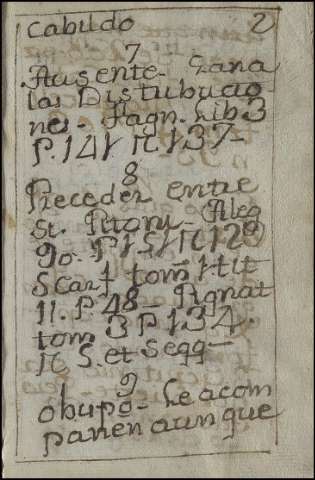 Cabildo 2
7
Ausente- Gana
las Distubucio
nes- Pagn. Lib 3
P. 141 n 137-
8
Preceder entre
si.
go. P 151 n 120
Scarf tom 1 tit
11. P. 48. Pignat
tom 3 P 134.
n S. et seqq-
9
obispo- Le acom
pañen aunque